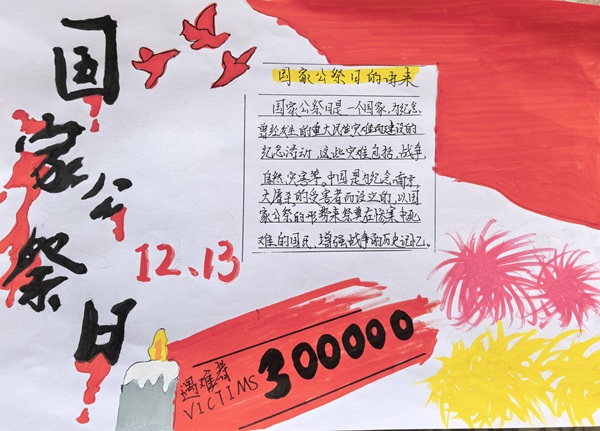 国家公祭日
12.13
国家公祭日的由来
国家公祭日是一个国家,为纪念
曾经发生的重大民族灾难而建设的
纪念活动,这些灾难包括,战争,
自然灾害等。中国是为纪念南京
大屠杀的受害者而设立的,以国
家公祭的形势来祭奠在惨案中死
难的国民,增强战争的历史记忆。
遇难者 300000
VICTIMS